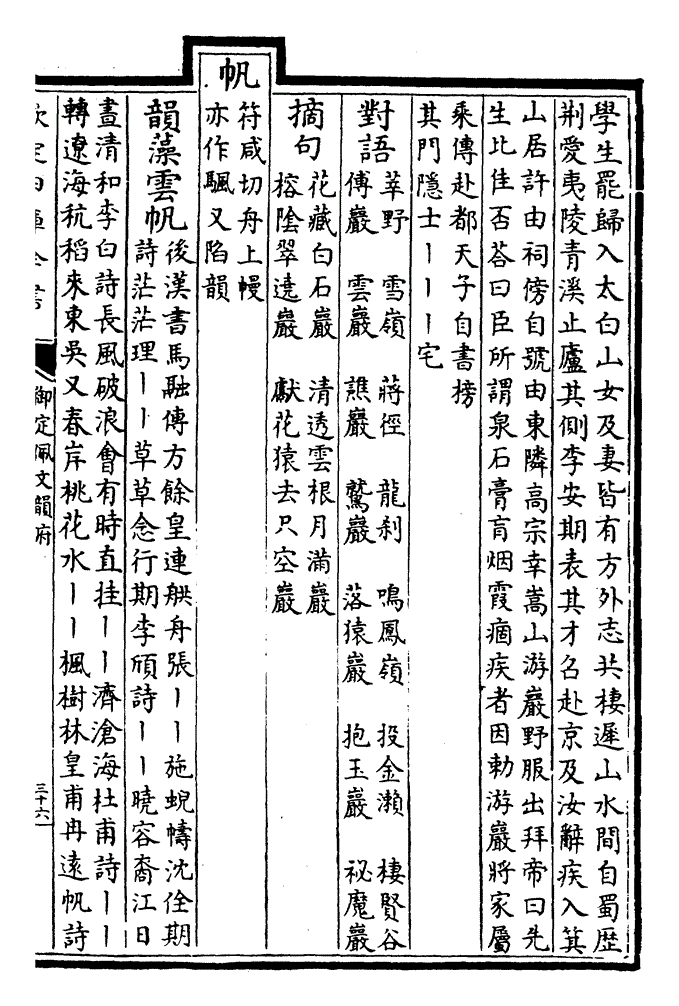 學生罷歸入太白山女及妻皆有方外志共棲遲山水間自蜀歴
荆愛夷陵青溪止廬其側李安期表其才名赴京及汝辭疾入箕
山居許由祠傍自號由東隣高宗幸嵩山游巖野服出拜帝曰先
生比佳否荅曰臣所謂泉石膏肓烟霞痼疾者因勅游巖將家屬
乘傳赴都天子自書榜
其門隱士丨丨丨宅
對語
莘野 雪嶺 蔣徑 龍刹 鳴鳳嶺 投金瀨 棲賢谷
傅巖 雲巖 譙巖 鷲巖 落猿巖 抱玉巖 祕魔巖
摘句
花藏白石巖 清透雲根月滿巖
榕陰翠遶巖 獻花猿去尺空巖
帆
符咸切舟上幔
亦作颿又陷韻
韻藻雲帆
後漢書馬融傳方餘皇連舼舟張丨丨施蜺幬沈佺期
詩茫茫理丨丨草草念行期李頎詩丨丨曉容裔江日
晝清和李白詩長風破浪會有時直挂丨丨濟滄海杜甫詩丨丨
轉遼海秔稻來東吳又春岸桃花水丨丨楓樹林皇甫冉遠帆詩
欽定四庫全書
御定佩文韻府
三十六